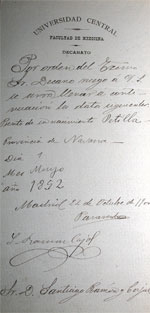 UNIVERSIDAD CENTRAL
FACULTAD DE MEDICINA
DECANATO
Por orden del Excmo
Sr. Decano ruego a V. S.
se sirva llenar a conti-
nuación los datos siguientes
Punto de su nacimiento Petilla
Provincia de Navarra
Día 1
Mes Mayo
año 1852
Madrid 24 de Octubre
S. Ramón Cajal
Sr. D. Santiago Ramón y Cajal